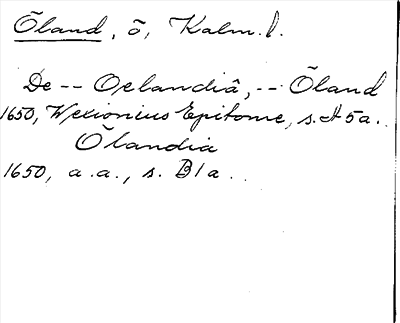 Õland, õ, Kalm. l.
De -- Oelandiâ, -- Õland
1650, Wexionius Epitome, s. A 5a.
Õlandia
1650, a.a., s. B1a.